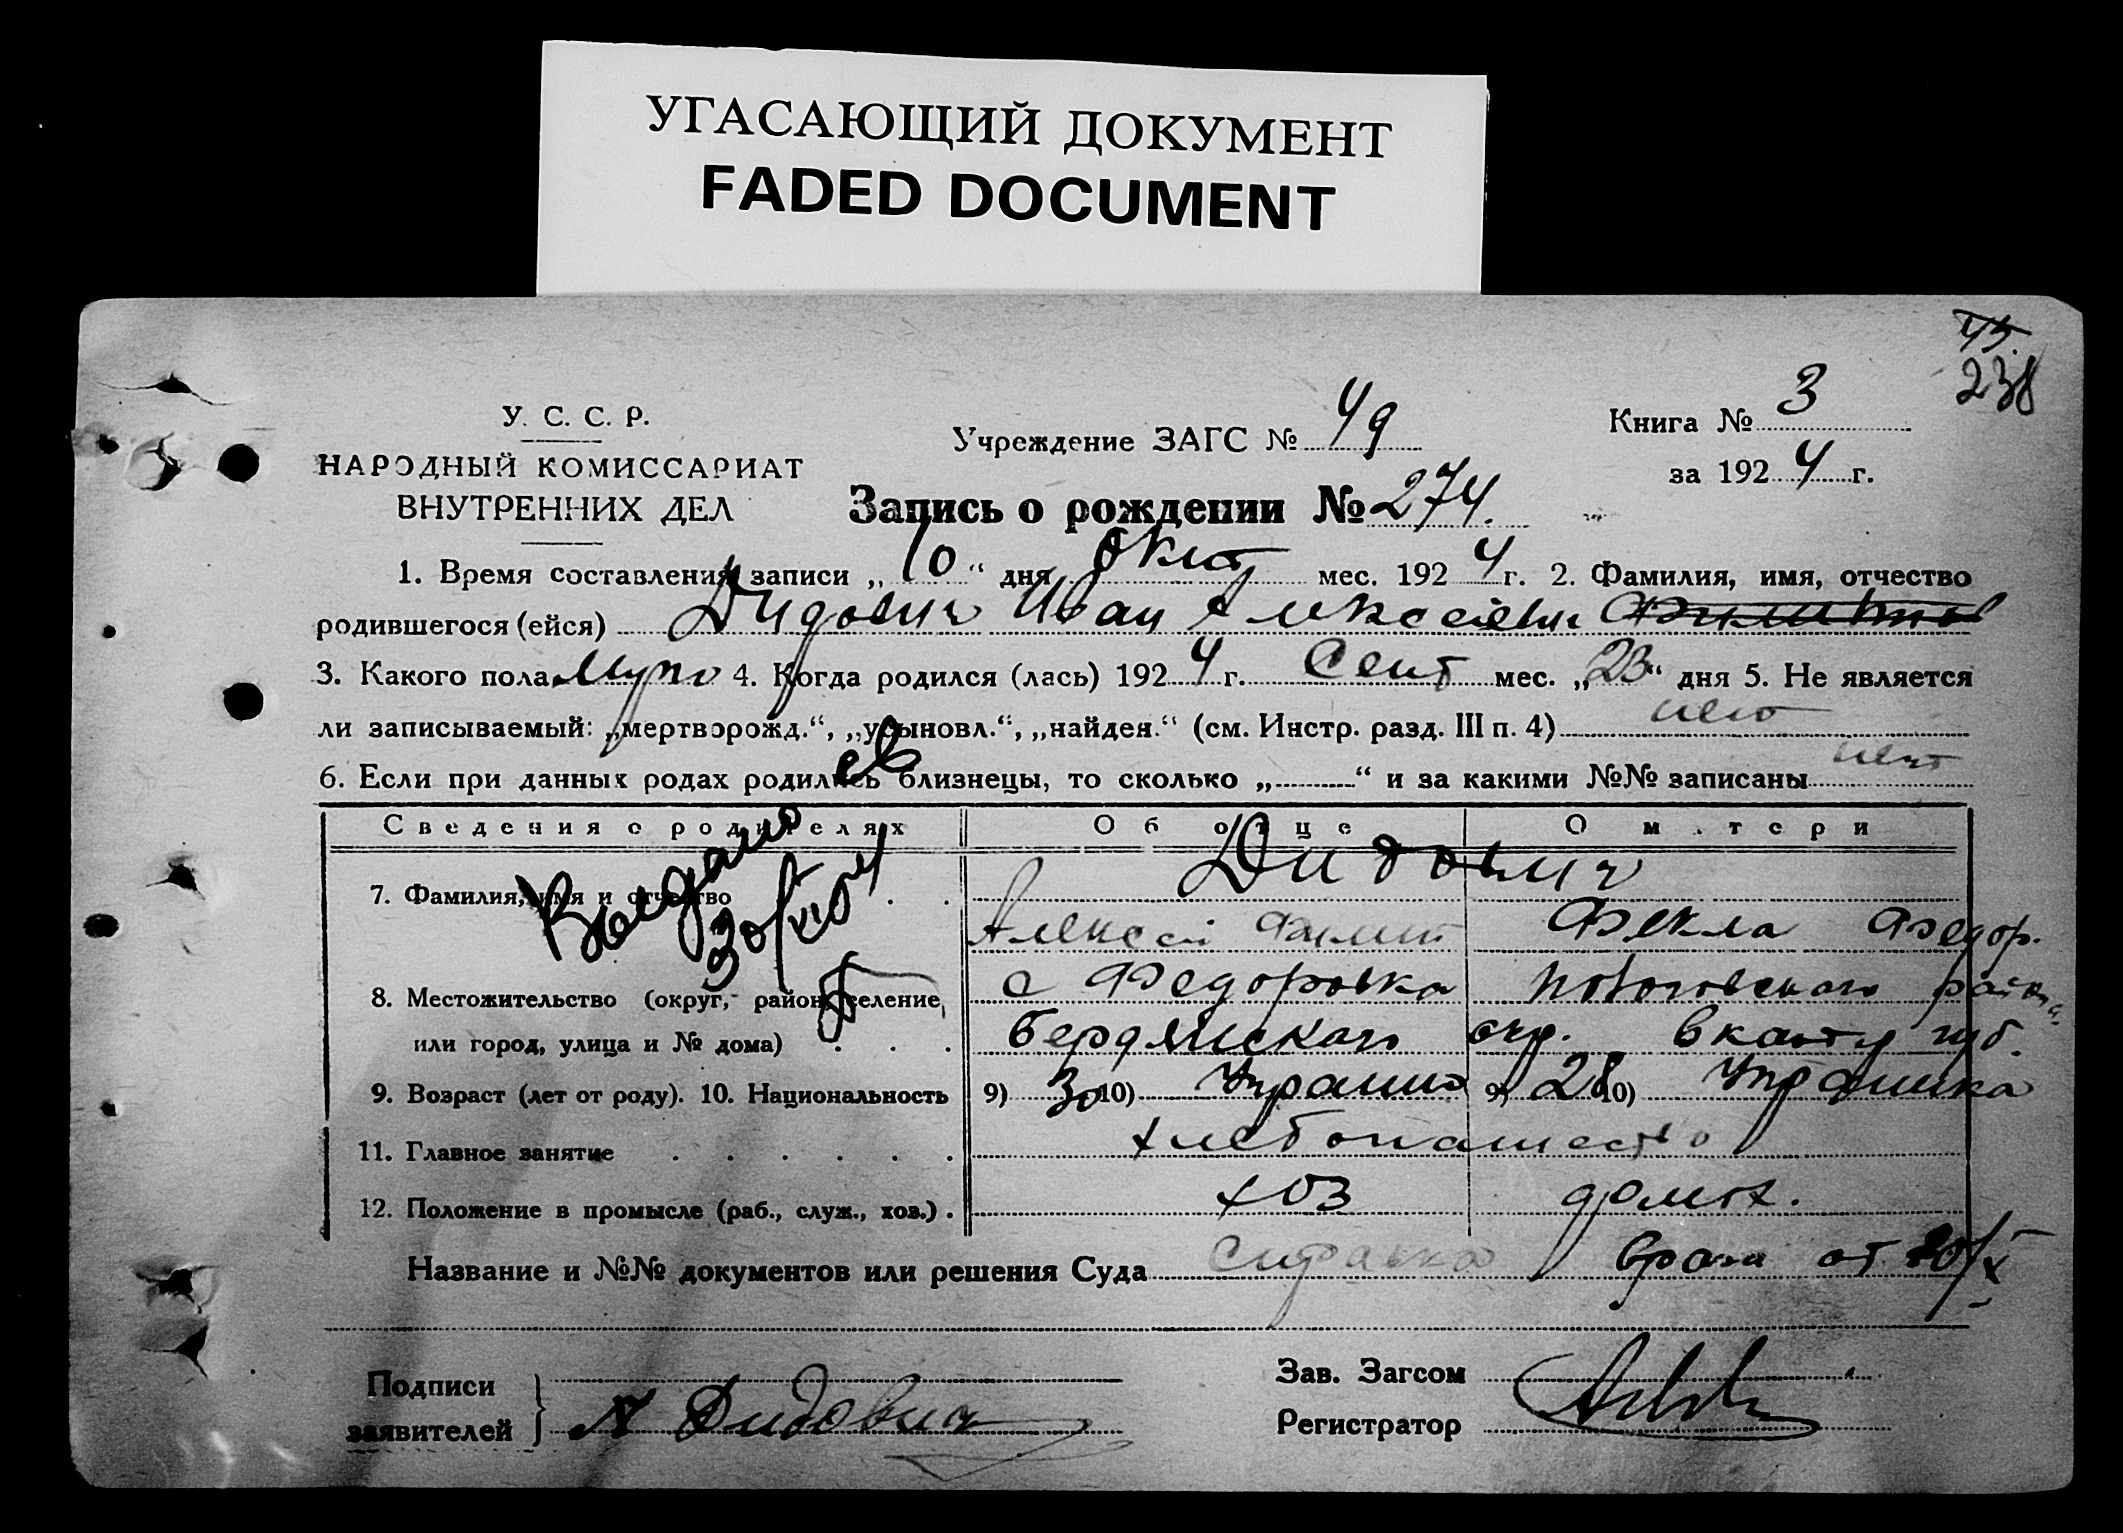 УГАСАЮЩИЙ ДОКУМЕНТ
FADED DOCUMENT
45.
238
У. С. С. Р.
НАРОДНЫЙ КОМИССАРИАТ
ВНУТРЕННИХ ДЕЛ
Учреждение ЗАГС № 49
Книга № 3
за 1924 г.
Запись о рождении № 274.
1. Время составления записи „10“ дня окт мес. 1924 г. 2. Фамилия, имя, отчество
родившегося (ейся) Дидович Иван Алексеевич
3. Какого пола муж 4. Когда родился (лась) 1924 г. Сент мес. „23“ дня 5. Не является
ли записываемый: „мертворожд.“, „усыновл.“, „найден.“ (см. Инстр. разд. III п. 4) нет
6. Если при данных родах родились близнецы, то сколько „ “ и за какими №№ записаны нет
Сведения о родителях Об отце О матери
Дидович
7. Фамилия, имя и отчество
Алексей Филип Фекла Федор.
Выдано
8. Местожительство (округ, район, селение, с Федоровка района
или город, улица и № дома) Бердянского окр. Екат губ.
9. Возраст (лет от роду). 10. Национальность 9) 30 10) Украин 9) 28 10) Украинка
11. Главное занятие хлебопашество
12. Положение в промысле (раб., служ., хоз.) хоз домох.
Название и №№ документов или решения Суда Справка врача от 20/X
Подписи
заявителей А Дидович
Зав. Загсом
Регистратор